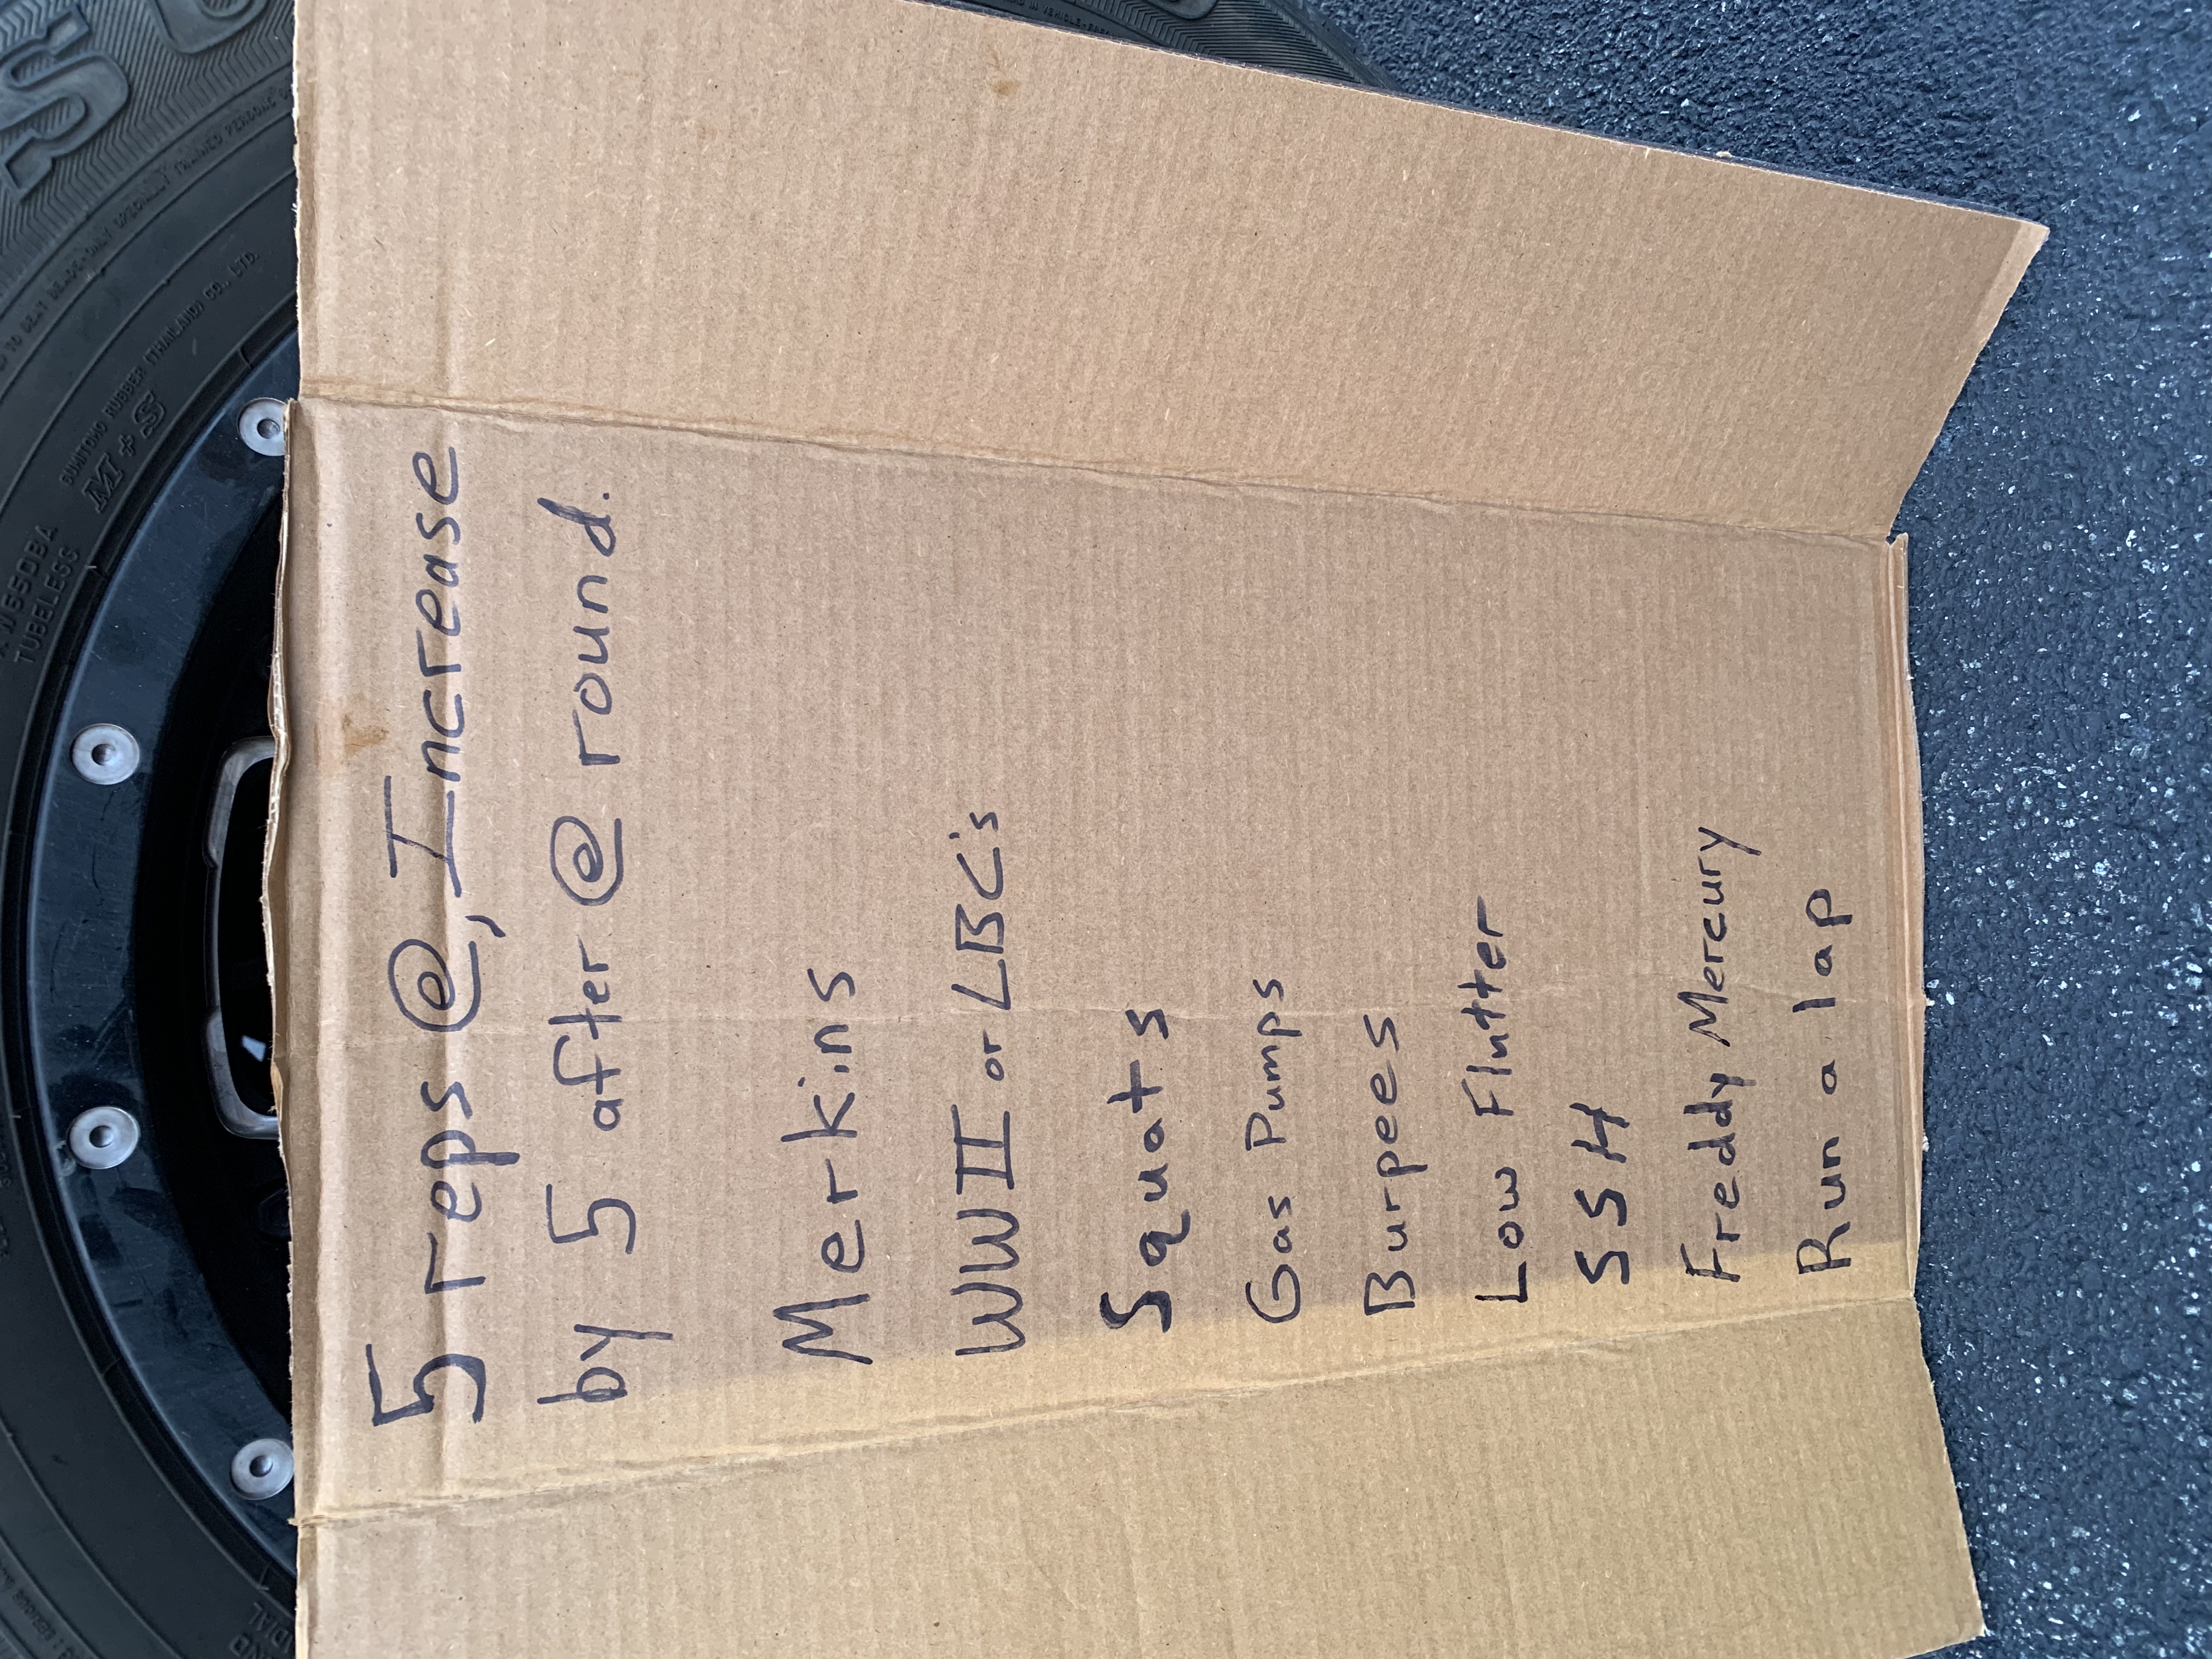 5 reps @, Increase
by 5 after @ round.
Merkins
WWII or LBC's
Squats
Gas Pumps
Burpees
Low Flutter
SSH
Freddy Mercury
Run a lap
TUBELESS
M+S
SUMITOMO RUBBER (THAILAND) CO., LTD.